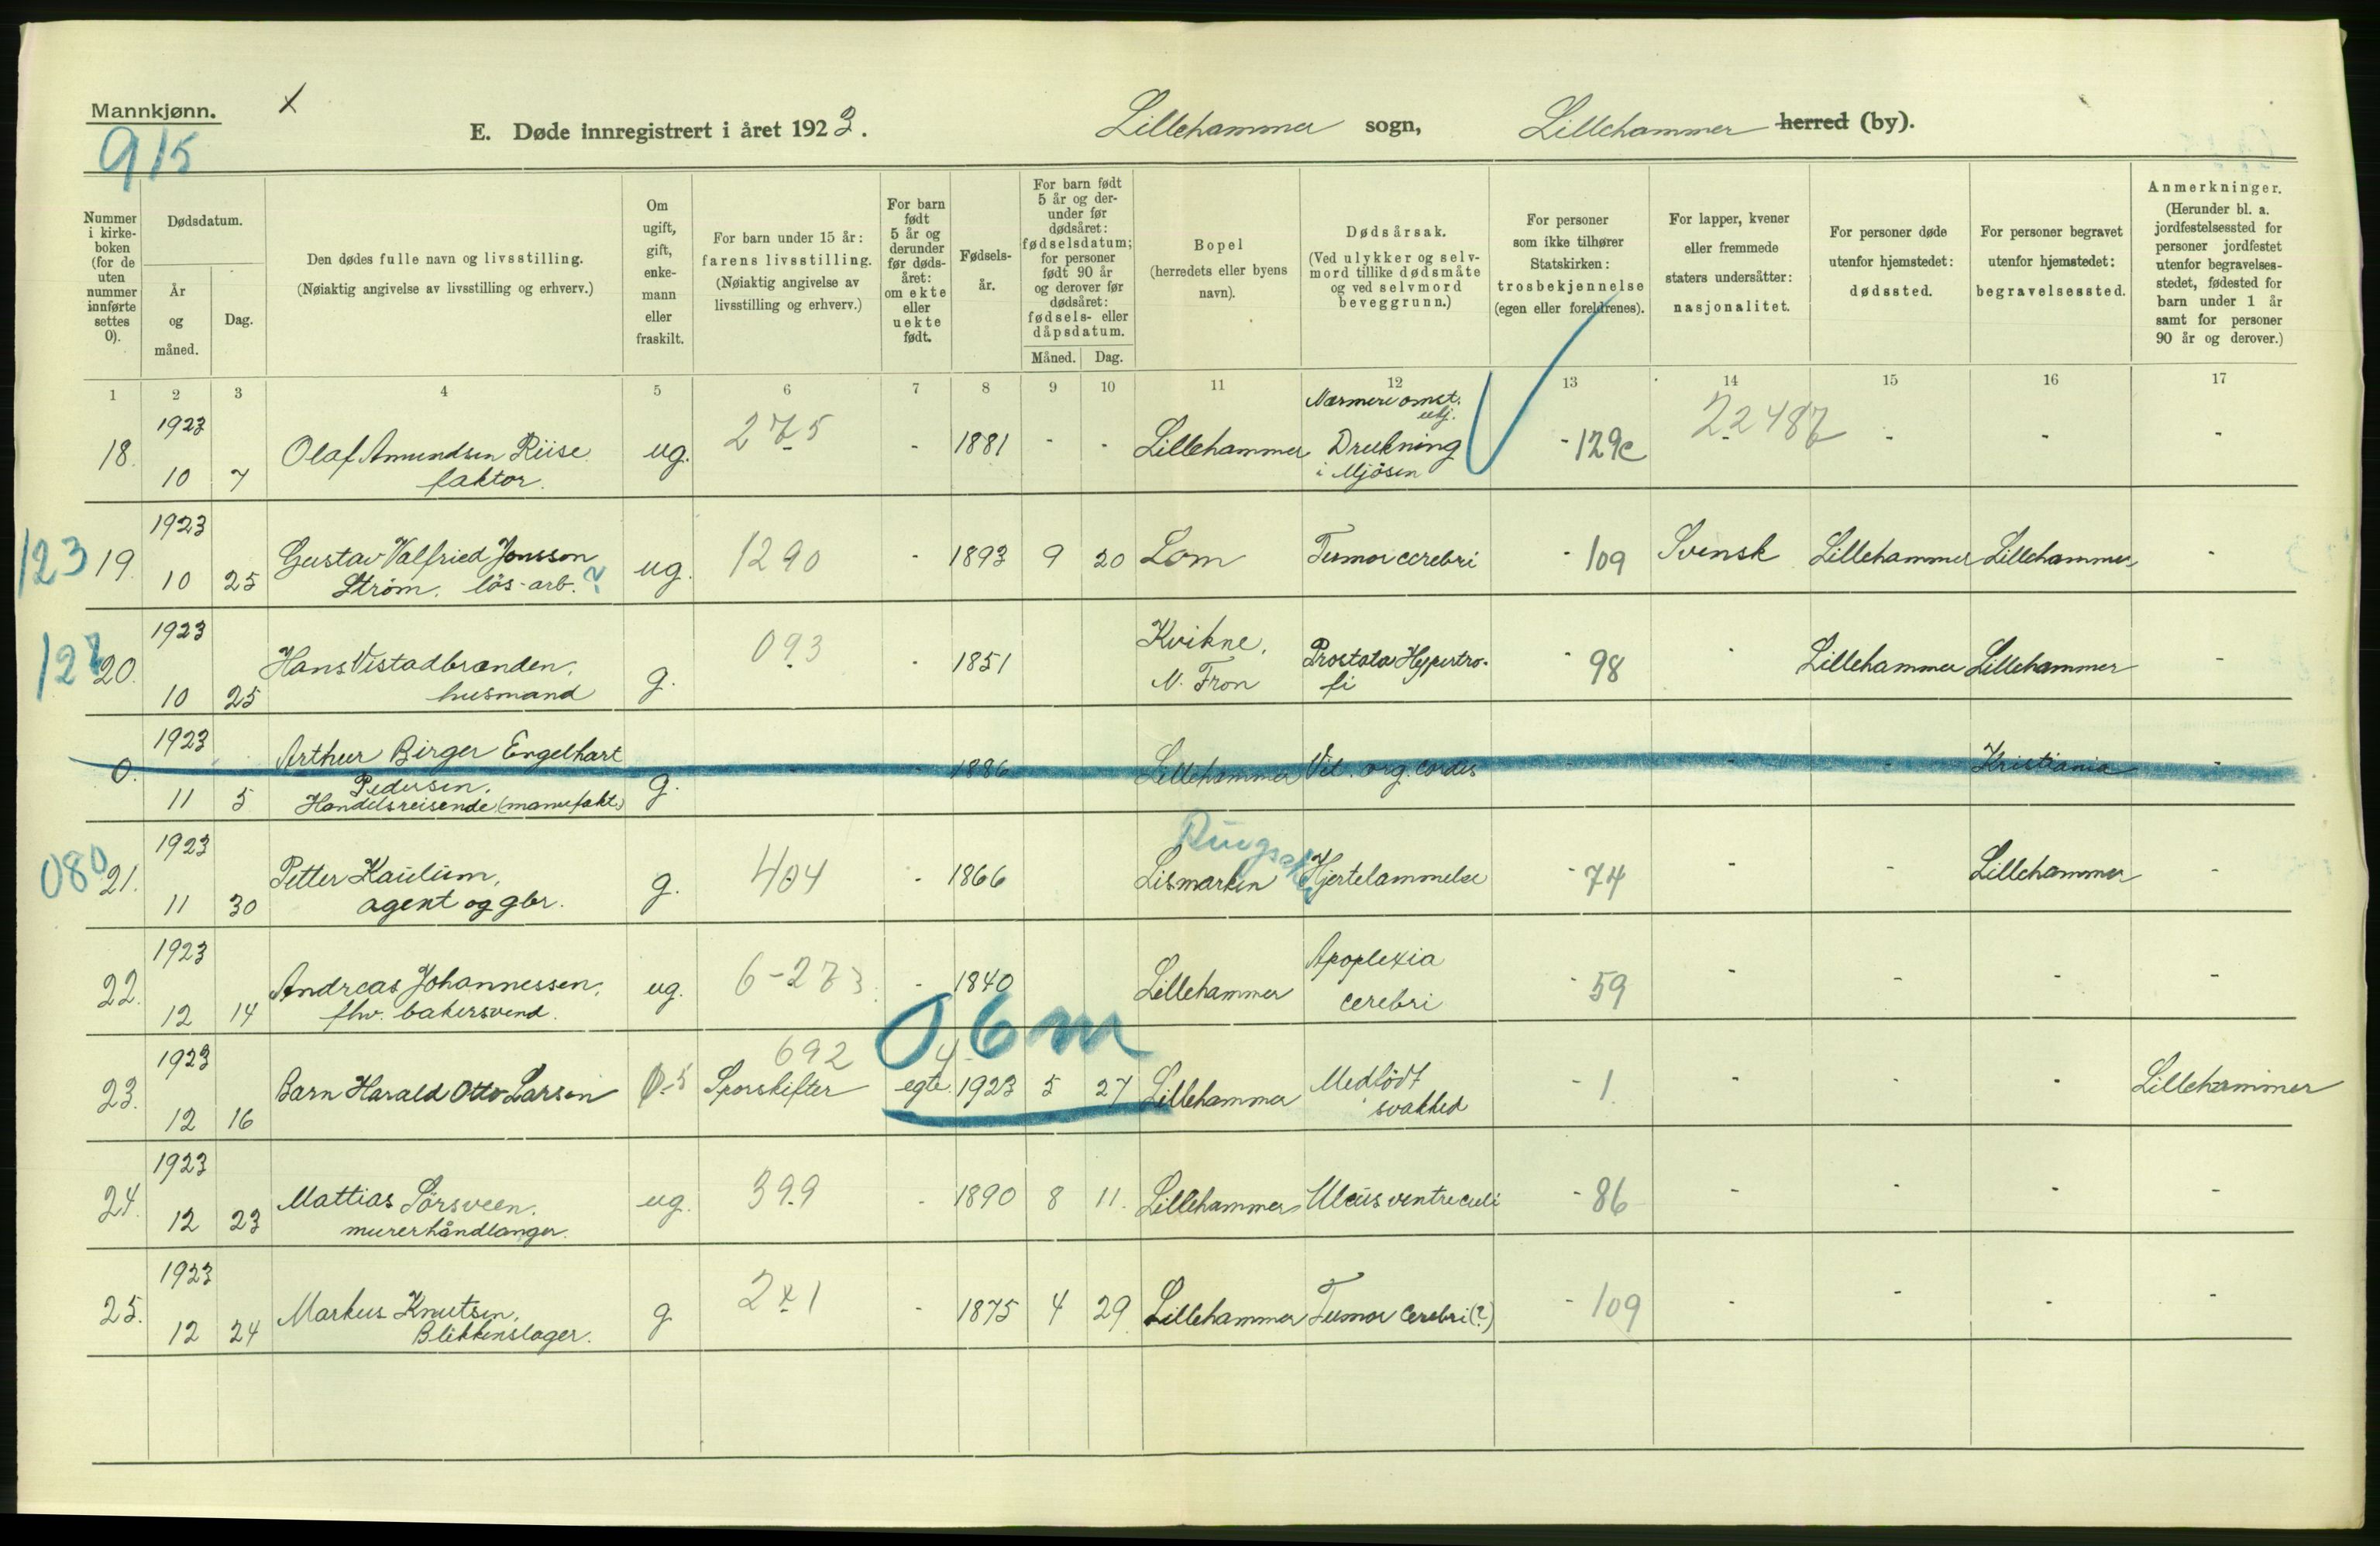 Mannkjønn.
915
E. Døde innregistrert i året 1923. Lillehammer sogn, Lillehammer herred (by).
Nummer i kirke-boken (for de uten nummer innførte settes 0).
Dødsdatum.
År og måned.
Dag.
Den dødes fulle navn og livsstilling.
(Nøiaktig angivelse av livsstilling og erhverv.)
Om ugift, gift, enke-mann eller fraskilt.
For barn under 15 år: farens livsstilling.
(Nøiaktig angivelse av livsstilling og erhverv.)
For barn født 5 år og derunder før døds-året: om ekte eller uekte født.
Fødsels-år.
For barn født 5 år og der-under før dødsåret: fødselsdatum; for personer født 90 år og derover før dødsåret: fødsels- eller dåpsdatum.
Måned. Dag.
Bopel
(herredets eller byens navn).
Dødsårsak.
(Ved ulykker og selv-mord tillike dødsmåte og ved selvmord beveggrunn.)
For personer som ikke tilhører Statskirken: trosbekjennelse (egen eller foreldrenes).
For lapper, kvener eller fremmede staters undersåtter: nasjonalitet.
For personer døde utenfor hjemstedet: dødssted.
For personer begravet utenfor hjemstedet: begravelsessted.
Anmerkninger.
(Herunder bl. a. jordfestelsessted for personer jordfestet utenfor begravelses-stedet, fødested for barn under 1 år samt for personer 90 år og derover.)
1 2 3 4 5 6 7 8 9 10 11 12 13 14 15 16 17
18. 1923 10 7 Olaf Amundsen Riise faktor. ug. 275 - 1881 - - Lillehammer Nærmere omst. Drukning i Mjösen - 129c 22487 - - -
123 19. 1923 10 25 Gustav Valfried Jonsson Strøm, lös-arb. ? ug. 1290 - 1893 9 20 Lom Tumor cerebri - 109 Svensk Lillehammer Lillehammer -
20. 1923 10 25 Hans Vistadbrænden, husmand g. 093 - 1851 Kvikne, N. Fron Prostata Hypertro-fi - 98 - Lillehammer Lillehammer -
0. 1923 11 5 Arthur Birger Engelhart Pedersen, Handelsreisende (manufakt.) g. - - 1886 Lillehammer Vit. org. cordis - - - Kristiania -
080 21. 1923 11 30 Petter Kaulum, agent og gbr. g. 404 - 1866 Ringsaker Lismarken Hjertelammelse - 74 - - Lillehammer -
22. 1923 12 14 Andreas Johannessen, fhv. bakersvend. ug. 6-273 - 1840 Lillehammer Apoplexia cerebri - 59 - - - -
06m
23. 1923 12 16 Barn Harald Otto Larsen 692 Sporskifter 4- egte. 1923 5 27 Lillehammer Medfödt svakhed - 1. - - - Lillehammer
24. 1923 12 23 Mattias Sörsveen, murerhåndlanger. ug. 399 - 1890 8 11. Lillehammer Ulcus ventreculi - 86 - - - -
25. 1923 12 24 Markus Knutsen, Blikkenslager. g 2x1 - 1875 4 29 Lillehammer Tumor Cerebri (?) - 109 - - - -